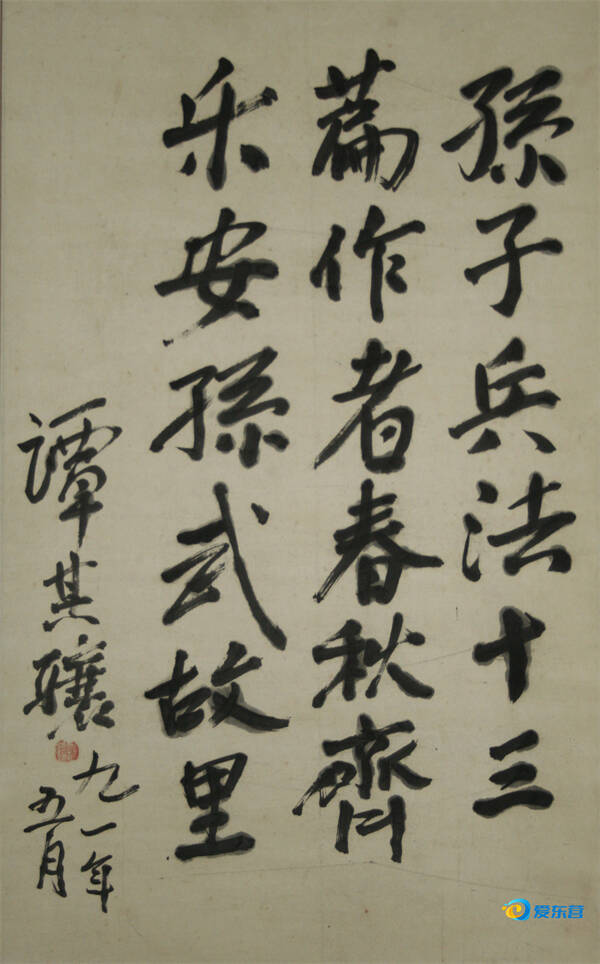 孫子兵法十三
萹作者春秋齊
乐安孫武故里
譚其驤
九一年
五月
爱乐营